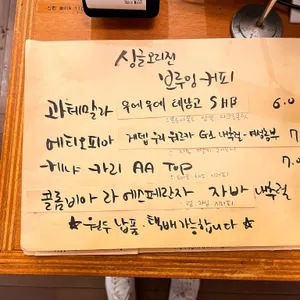 싱글오리진
브루잉커피
과테말라 우에우에 테낭고 SHB 6.0
에티오피아 게뎁 우리 워르카 G1 내추럴-여성농부 7.
케냐 카리 AA TOP 7.
콜롬비아 라 에스페란자 자바 내추럴
☆ 원두 납품·택배가능합니다 ☆